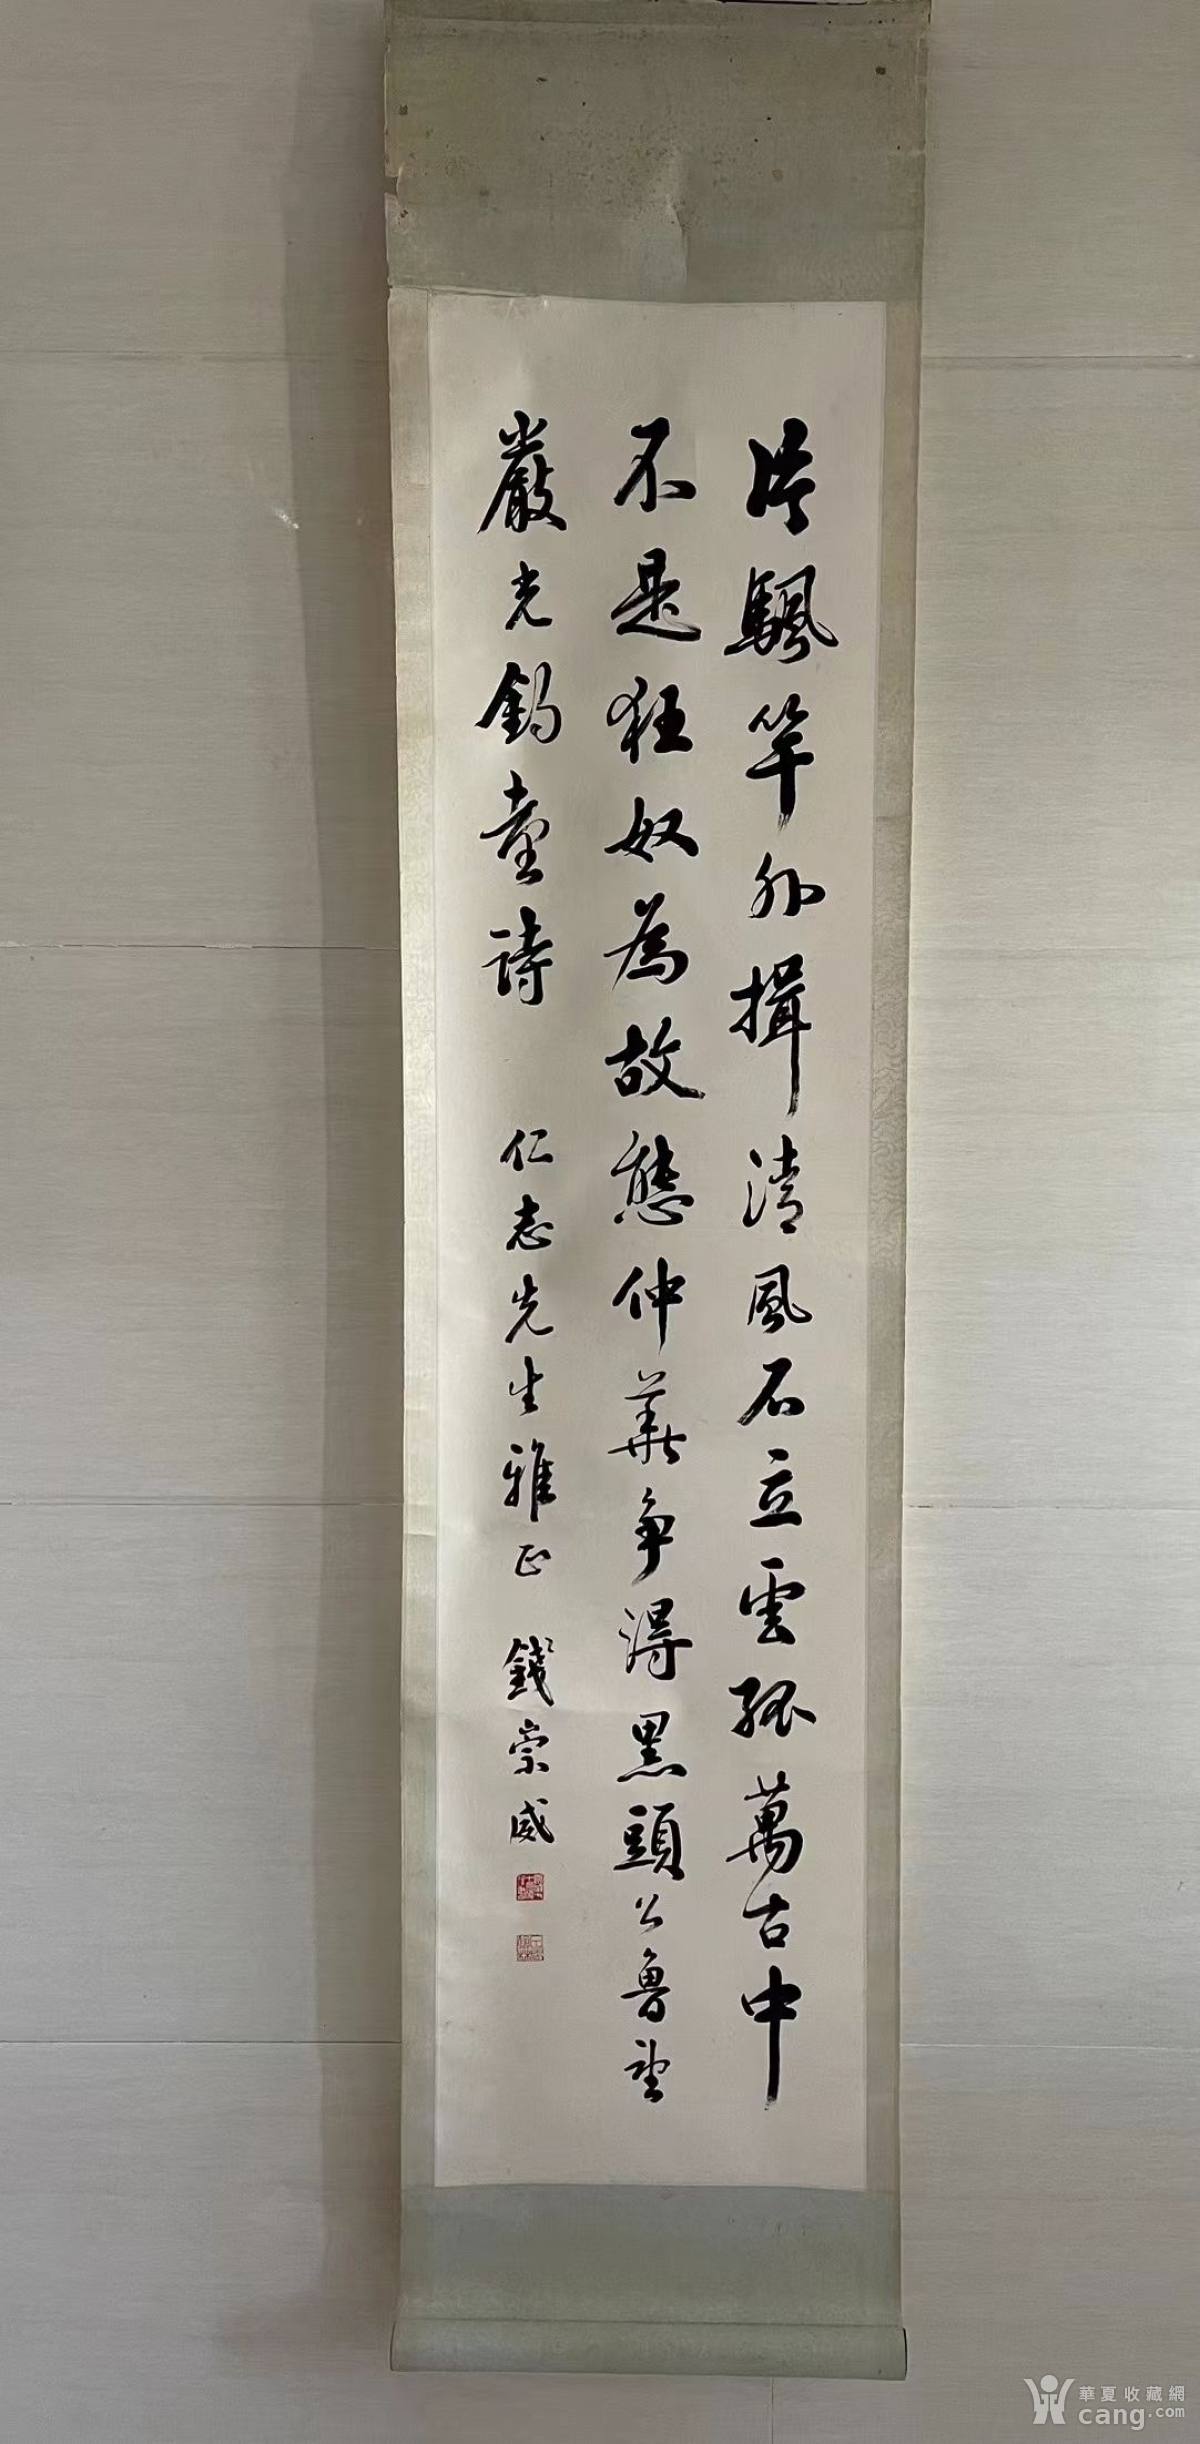 片颿竿外揖清風石立雲孤萬古中
不是狂奴為故態仲華爭得黑頭公魯望
嚴光釣臺詩 仁志先生雅正 錢崇威
華夏收藏網
cang.com